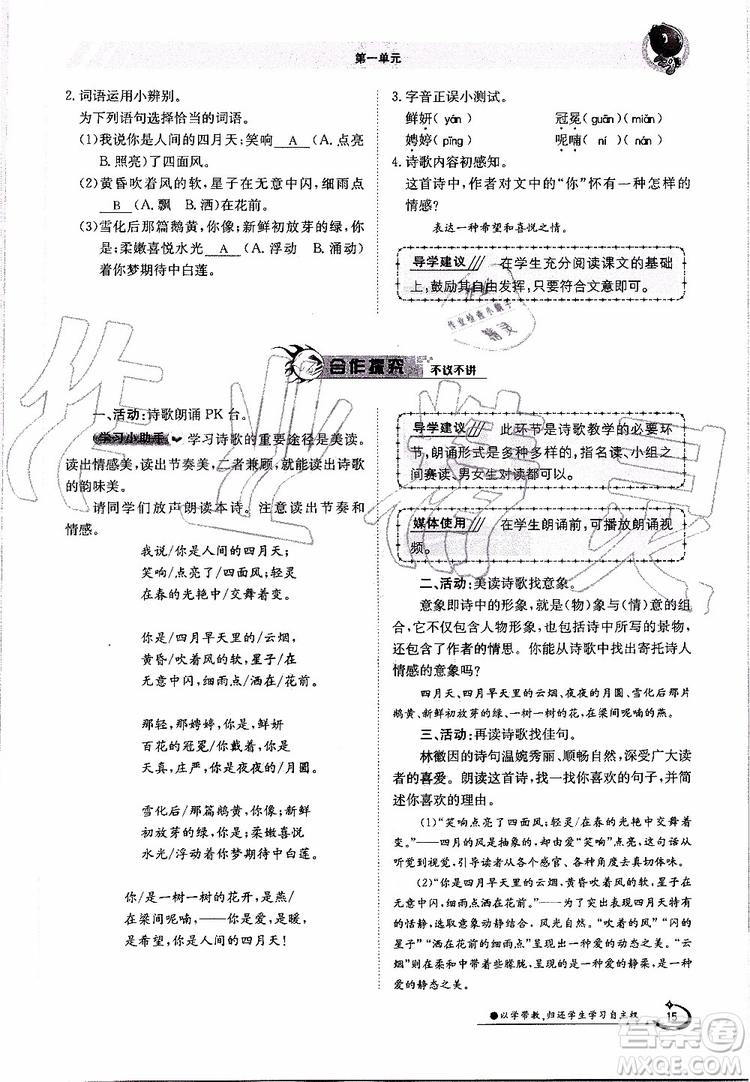 第一单元
2. 词语运用小辨别。
为下列语句选择恰当的词语。
(1)我说你是人间的四月天;笑响 A (A. 点亮
B. 照亮)了四面风。
(2)黄昏吹着风的软,星子在无意中闪,细雨点
B (A. 飘 B. 洒)在花前。
(3)雪化后那片鹅黄,你像;新鲜初放芽的绿,你
是;柔嫩喜悦水光 A (A. 浮动 B. 涌动)
着你梦期待中白莲。
3. 字音正误小测试。
鲜妍(yán) 冠冕(guān)(miǎn)
娉婷(pīng) 呢喃(ní)(nán)
4. 诗歌内容初感知。
这首诗中,作者对文中的“你”怀有一种怎样的
情感?
表达一种希望和喜悦之情。
导学建议 在学生充分阅读课文的基础
上,鼓励其自由发挥,只要符合文意即可。
合作探究 不议不讲
一、活动:诗歌朗诵 PK 台。
学习小助手 学习诗歌的重要途径是美读。
读出情感美,读出节奏美,二者兼顾,就能读出诗歌
的韵味美。
请同学们放声朗读本诗。注意读出节奏和
情感。
我说/你是人间的四月天;
笑响/点亮了四面风;轻灵
在春的光艳中/交舞着变。
你是/四月早天里的/云烟,
黄昏/吹着风的软,星子/在
无意中闪,细雨点/洒在花前。
那轻,那娉婷,你是,鲜妍
百花的冠冕/你戴着,你是
天真,庄严,你是夜夜的月圆。
雪化后/那片鹅黄,你像;新鲜
初放芽的绿,你是;柔嫩喜悦
水光/浮动着你梦期待中白莲。
你是/一树一树的花开,是燕
在梁间呢喃,——你是爱,是暖,
是希望,你是人间的四月天!
导学建议 此环节是诗歌教学的必要环
节,朗诵形式是多种多样的,指名读、小组之
间赛读、男女生对读都可以。
媒体使用 在学生朗诵前,可播放朗诵视
频。
二、活动:美读诗歌找意象。
意象即诗中的形象,就是(物)象与(情)意的组
合,它不仅包含人物形象,还包括诗中所写的景物,
还包含了作者的情思。你能从诗歌中找出寄托诗人
情感的意象吗?
四月天、四月早天里的云烟、夜夜的月圆、雪化后那片
鹅黄、新鲜初放芽的绿、一树一树的花、在梁间呢喃的燕。
三、活动:再读诗歌找佳句。
林徽因的诗句温婉秀丽、顺畅自然,深受广大读
者的喜爱。朗读这首诗,找出你喜欢的句子,并简
述你喜欢的理由。
(1)“笑响点亮了四面风;轻灵/在春的光艳中交舞着
变。”——四月的风是抽象的,却由“笑响”点亮,可谓由
听觉到视觉,引导读者从各个感官、角度去真切体味。
(2)“你是四月早天里的云烟,黄昏吹着风的软,星子在
无意中闪,细雨点洒在花前。”——为了突出四月天特有
的恬静,选取意象动静结合、风光自然。“吹着的风”“闪的
星子”“洒在花前的细雨点”呈现出一种爱的动态之美。“云
烟”“黄昏”在这些朦胧、安恬中显现出一种爱的静柔,是爱
的静态之美。
●以学带教,归还学生学习自主权
15
作业精灵
作业检查小助手
精灵
答案圈
MXQE.COM